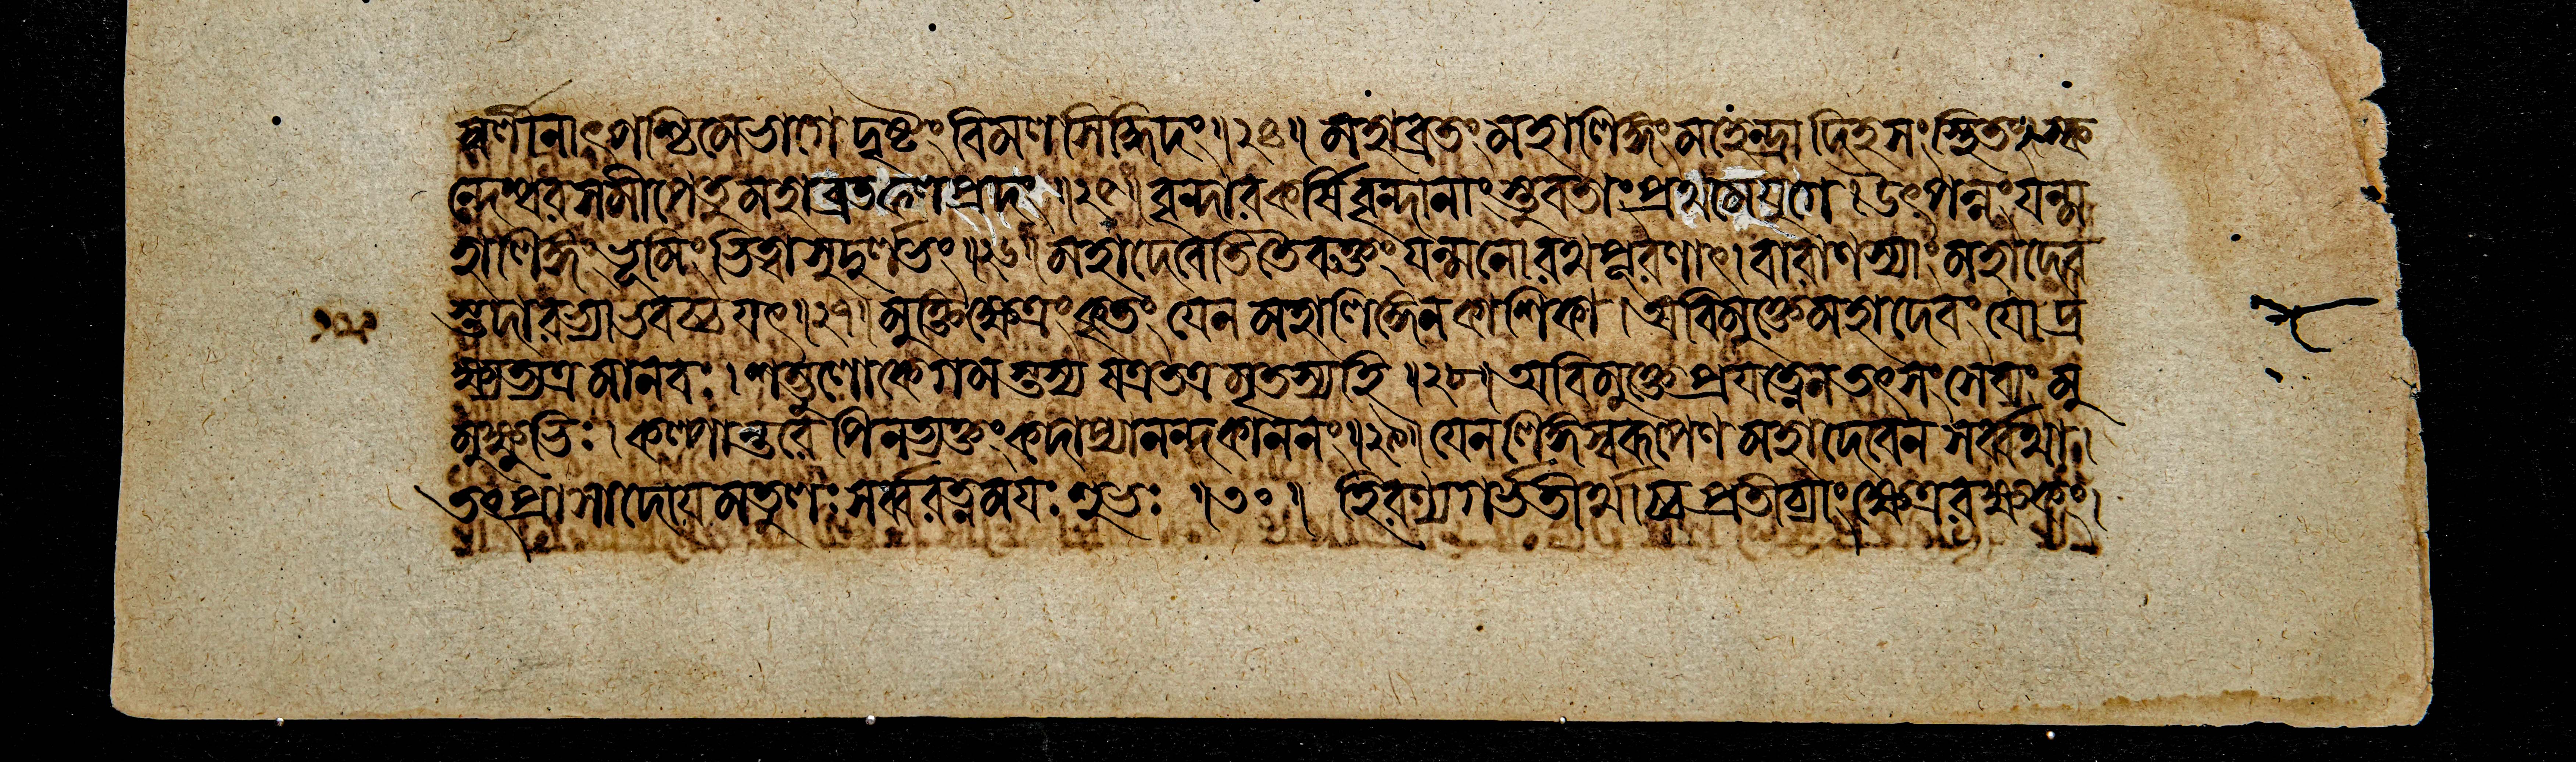 স্বর্লীনাৎপশ্চিমেভাগে দৃষ্টং বিমলসিদ্ধিদং॥২৪॥ মহাব্রতং মহালিঙ্গং মহেন্দ্রাদিহসংস্থিতং। স্ক
ন্দেশ্বরসমীপেতু মহাব্রতফলপ্রদং॥২৫॥ বৃন্দারকর্ষিবৃন্দানাং স্তুবতাং প্রথমেযুগে। উৎপন্নং যন্ম
হালিঙ্গং ভূমিং ভিত্বা সুদুর্লভং॥২৬॥ মহাদেবেতি তৈরুক্তং যন্মনোরথপূরণাৎ। বারাণস্যাং মহাদেব
স্তদারভ্যাভবচ্চ যৎ॥২৭॥ মুক্তিক্ষেত্রং কৃতং যেন মহালিঙ্গেন কাশিকা। অবিমুক্তেমহাদেবং যো দ্র
ক্ষ্যত্যত্র মানবঃ। শম্ভুলোকে গমস্তস্য যত্রতত্র মৃতস্যহি॥২৮॥ অবিমুক্তে প্রযত্নেন তৎসংসেব্যং মু
মুক্ষুভিঃ। কল্পান্তরেপিনত্যক্তং কদাপ্যানন্দকাননং॥২৯॥ যেন লিঙ্গস্বরূপেণ মহাদেবেন সর্ব্বথা।
তৎপ্রাসাদোয়মতুলঃ সর্ব্বরত্নময়ঃ শুভঃ॥৩০॥ হিরণ্যগর্ভতীর্থাচ্চ প্রতীচ্যাং ক্ষেত্ররক্ষকং।